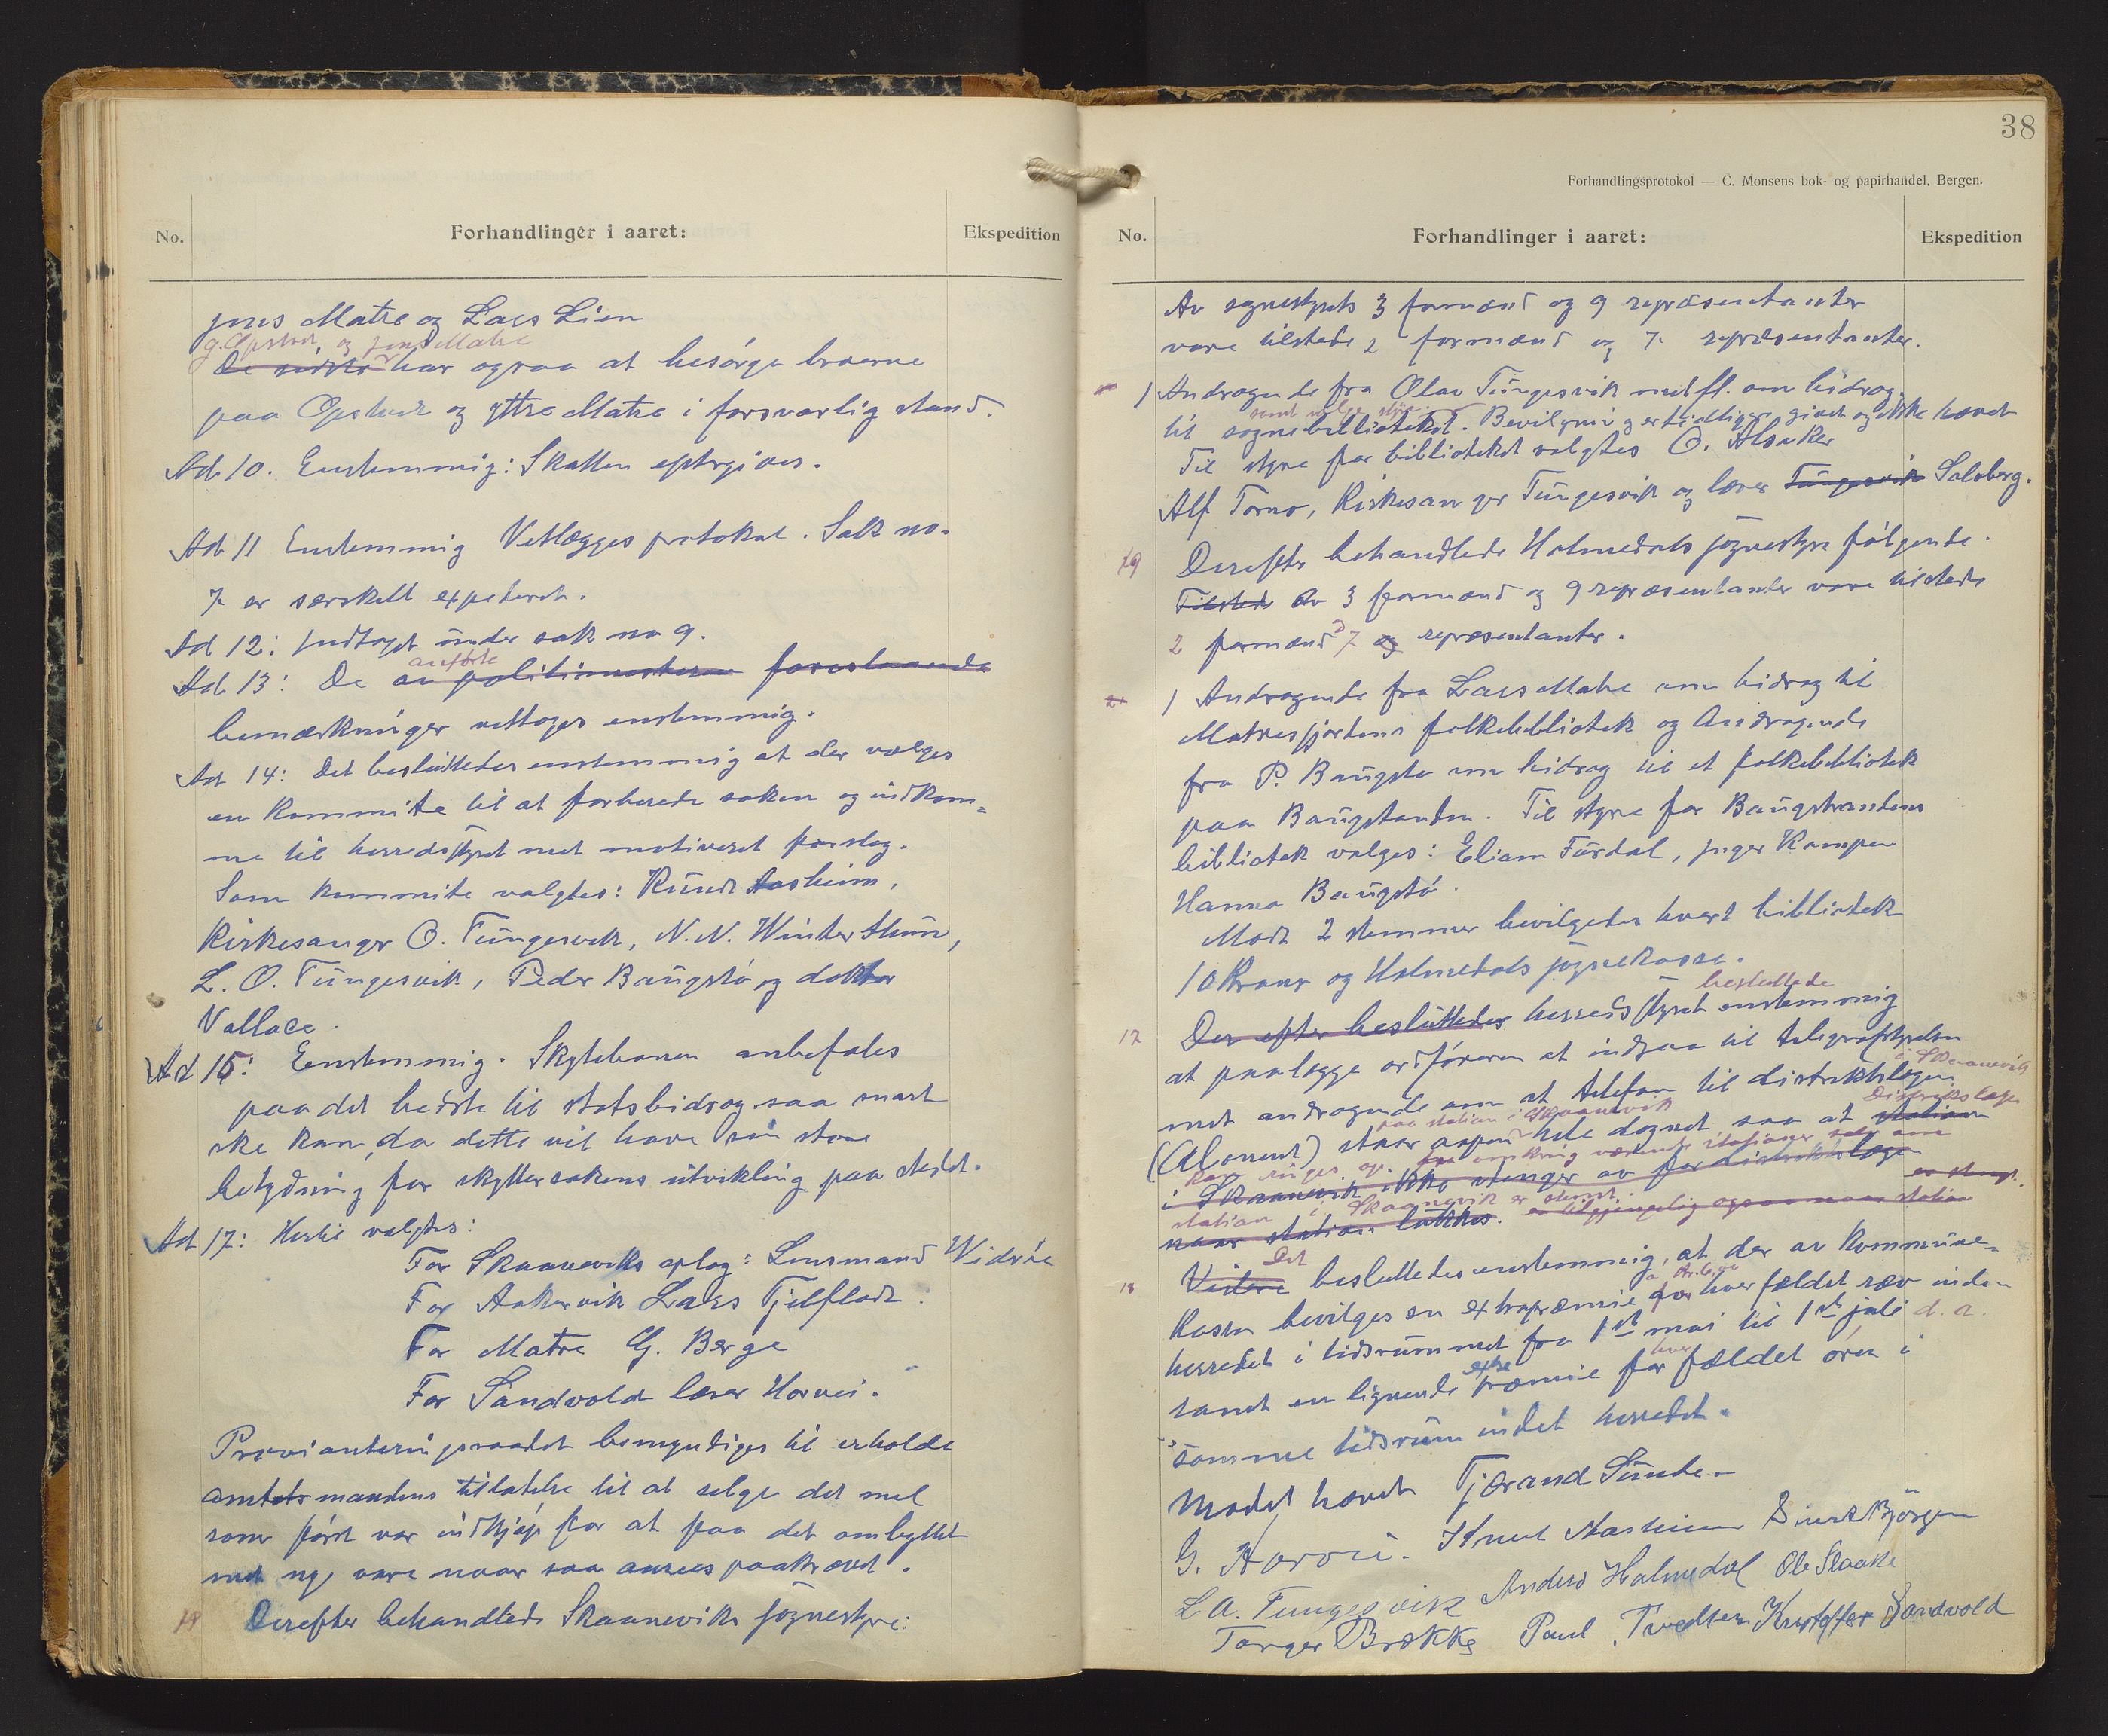 No.
Forhandlinger i aaret:
Ekspedition
Jens Matre og Lars Lien
G. Opstvedt og Jens Matre
De sidste har ogsaa at besørge broerne
paa Opstvedt og yttre Matre i forsvarlig stand.
Ad 10. Enstemmig: Skatten eftergives.
Ad 11 Enstemmig Vetlægges protokol. Sak no.
7 er særskilt expederet.
Ad 12: Indtaget under sak no 9.
anførte
Ad 13: De av politimesteren foreslaaende
bemærkninger vettages enstemmig.
Ad 14: Det besluttedes enstemmig at der vælges
en kommite til at forberede saken og indkom=
me til herredsstyret med motiveret forslag.
Som kommite valgtes: Knut Aasheim,
Kirkesanger O. Tungesvik, N. N. Winter Hum,
L. O. Tungesvik, Peder Baugstø og doktor
Vallace.
Ad 15: Eenstemmig. Skytebanen anbefales
paa det bedste til statsbidrag saa snart
ske kan, da dette vil have sin store
betydning for skyttersakens utvikling paa stedet.
Ad 17: Hertil valgtes:
For Skaaneviks oplag: Lensmand Widsöe
For Aakervik Lars Fjelflodt.
For Matre G. Berge
For Sandvold lærer Horvei.
Provianteringsraadet bemyndiges til erholde
amtsmandens tillatelse til at selge det mel
som først var indkjøp for at faa det ombyttet
med ny vare naar saa ansees paakrævet.
18 Derefter behandlede Skaaneviks sognestyre:
38
Forhandlingsprotokol — C. Monsens bok- og papirhandel, Bergen.
No.
Forhandlinger i aaret:
Ekspedition
Av sognestyrets 3 formænd og 9 repræsentanter
vare tilstede 2 formænd og 7 repræsentanter.
1 Andragende fra Olav Tungesvik med fl. om bidrag
samt valge styre
til sognebiblioteket. Bevilgning er tidligere givet og ikke hævet
Til styre for biblioteket valgtes O. Alsaker
Alf Torno, Kirkesanger Tungesvik og lærer Tungesvik Solberg.
19 Derefter behandlede Holmedals sognestyre følgende.
Tilstede Av 3 formænd og 9 repræsentanter vare tilstede
2 formænd 7 og repræsentanter.
1 Andragende fra Lars Matre om bidrag til
Matresfjordens folkebibliotek og Andragende
fra P. Baugstø om bidrag til et folkebibliotek
paa Baugstanden. Til styre for Baugstrandens
bibliotek valges: Eliam Furdal, Inger Kampen
Hanna Baugstø
Mod 2 stemmer bevilgedes hvert bibliotek
10 Kroner og Holmedals sognekasse.
besluttede
17 Der efter besluttedes herredsstyret enstemmig
at paalægge ordføreren at indgaa til telegrafstyrelsen
i Skaanevik
med andragende om at telefon til distriktslægen
paa station i Skaanevik Distriktslæge
(Abonent) staar aapen hele døgnet saa at station
kan ringes op fra omkring værende stationer selv om
i Skaanevik ikke stenger av for distriktslægen
station i Skaanevik er stengt er stengt.
naar station lukkes. er tilgjengelig ogsaa naar station
Det
18 Videre besluttedes enstemmig, at der av kommune-
kassen bevilges en extrapræmie for hver fældet ræv inden
herredet i tidsrummet fra 1st mai til 1st juli d. a.
extra hver
samt en lignende præmie for fældet ørn i
samme tidsrum indet herredet.
Mødet hævet Tjærand Sunde.
G. Horvei. Knut Aasheim Sivert Bjørgen
L A. Tungesvik Anders Holmedal Ole Slaake
Torger Brekke Paul Tvedten Kristoffer Sandvold